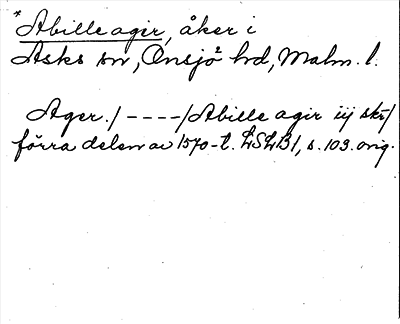 * Abille agir, åker i
Asks sn, Onsjö hd, Malm. l.
Ager./----/Abille agir iij skr/
förra delen av 1570-t. LSLB1, s. 103. orig.